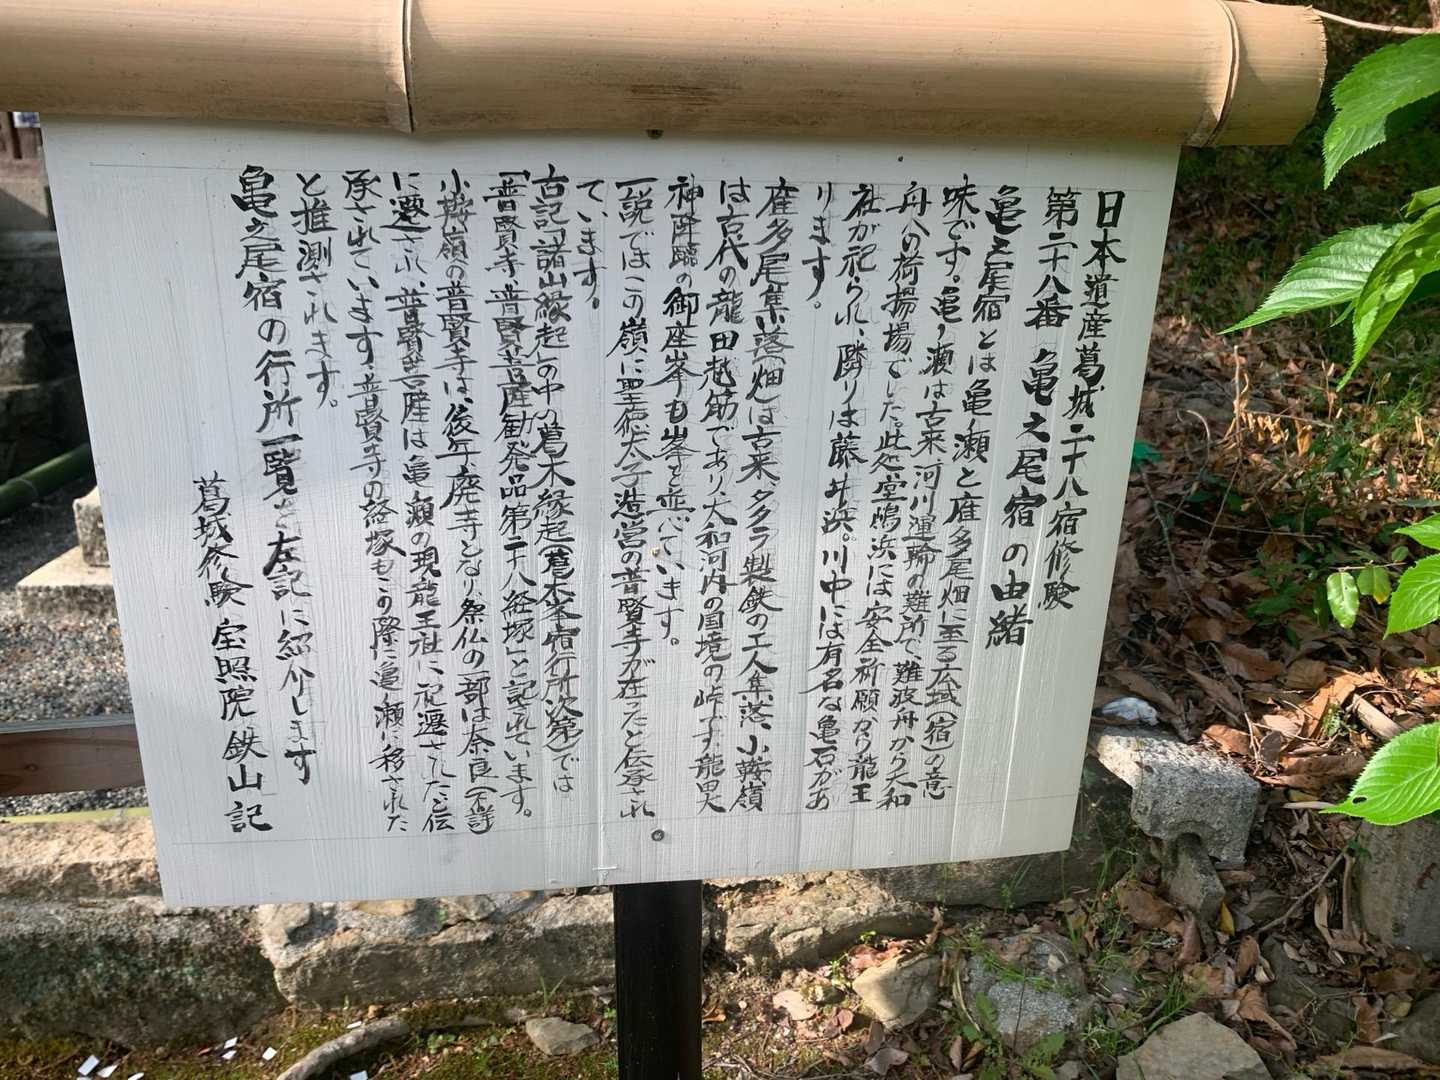 日本遺産葛城二十八宿修験
第二十八番 亀之尾宿の由緒
亀之尾宿とは亀ノ瀬と雁多尾畑に至る広域(宿)の意
味です。亀ノ瀬は古来河川運輸の難所で、難波舟から大和
舟への荷揚場でした。此処堂嶋浜には安全祈願なり龍王
社が祀られ、隣りは藤井浜。川中には有名な亀石があ
ります。
雁多尾集落(畑)は古来タタラ製鉄の工人集落、小鞍嶺
は古代の龍田越筋であり大和河内の国境の峠です。龍田大
神降臨の御座峯も峯を並べています。
一説ではこの嶺に聖徳太子造営の普賢寺が在ったと伝承され
ています。
古記「諸山縁起」の中の葛木縁起(葛木峯宿行所次第)では
「普賢寺、普賢菩薩勧発品第二十八経塚」と記されています。
小鞍嶺の普賢寺は、後年、廃寺となり祭仏の一部は奈良(不詳)
に遷され、普賢菩薩は亀ノ瀬の現龍王社に祀遷されたと伝
承されています。普賢寺の経塚もこの際に亀ノ瀬に移された
と推測されます。
亀之尾宿の行所一覧を左記に紹介します
葛城修験 宝照院 鉄山 記